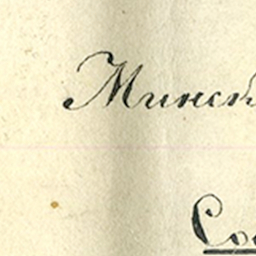 Минск
Со